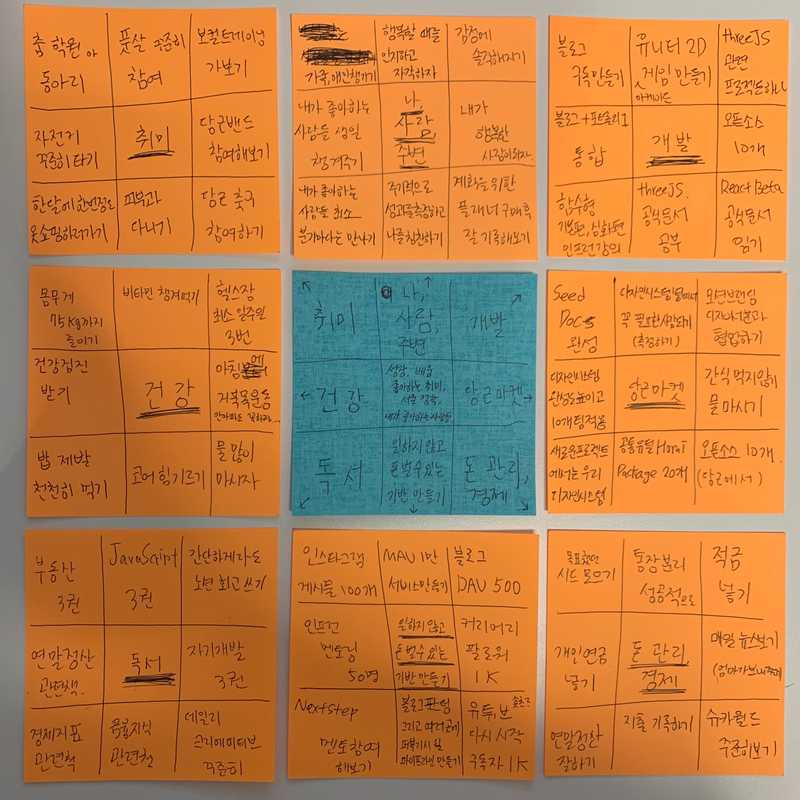 춤 학원 or
동아리
풋살 꾸준히
참여
보컬트레이닝
가보기
자전거
꾸준히 타기
취미
당근밴드
참여해보기
한달에 한번정도
옷쇼핑하러가기
피부과
다니기
당근 축구
참여하기
가족, 애인챙기기
행복할 때를
인지하고
자각하자
감정에
솔직해지기
내가 좋아하는
사람들 생일
챙겨주기
나,
사람,
주변
내가
행복한
사람이되자.
내가 좋아하는
사람들 최소
분기마다는 만나기
주기적으로
성과를측정하고
나를칭찬하기
계획을 위한
플래너 구매 후
잘 기록해보기
블로그
구독만들기
유니터 2D
게임 만들기
아케이드
threeJS
관련
프로젝트하나
블로그 + 포트폴리오
통합
개발
오픈소스
10개
함수형
기본편, 심화편
인프런 강의
threeJS.
공식문서
공부
React Beta
공식문서
읽기
몸무게
75kg까지
줄이기
비타민 챙겨먹기
헬스장
최소 일주일
3번
건강검진
받기
건강
아침에
거북목운동
밥 제발
천천히 먹기
코어 힘기르기
물 많이
마시자
취미
나,
사람,
주변
개발
건강
성장, 배움
좋아하는 취미,
내가 좋아하는사람들
당근마켓
독서
일하지 않고
돈 벌수있는
기반 만들기
돈 관리,
경제
Seed
Docs
완성
디자인시스템 멤버에
꼭 필요한사람되기
(측정하기)
모션브랜딩
디자이너분과
협업하기
디자인시스템
완성도높이고
10개팀적용
당근마켓
간식 먹지않기
물 마시자
새로운프로젝트
에서는 우리
디자인시스템
공통유틸 or
Package 20개
오픈소스 10개.
(당근에서)
부동산
3권
JavaScript
3권
간단하게라도
노션 회고 쓰기
연말정산
관련책.
독서
자기개발
3권
경제지표
관련책
금융지식
관련책
데일리
크리에이티브
꾸준히
인스타그램
게시물 100개
MAU 1만
서비스만들기
블로그
DAU 500
인프런
멘토링
50명
일하지 않고
돈 벌수 있는
기반 만들기
커리어리
팔로워
1K
Nextstep
멘토참여
해보기
블로그 포팅
그리고 여러곳에
퍼블리시 될
파이프라인 만들기
유튜브 쇼츠로
다시 시작
구독자 1K
목표했던
시드 모으기
통장분리
성공적으로
적금
넣기
개인연금
넣기
돈 관리,
경제
매일 뉴스보기
연말정산
잘하기
지출 기록하기
슈카월드
꾸준히보기